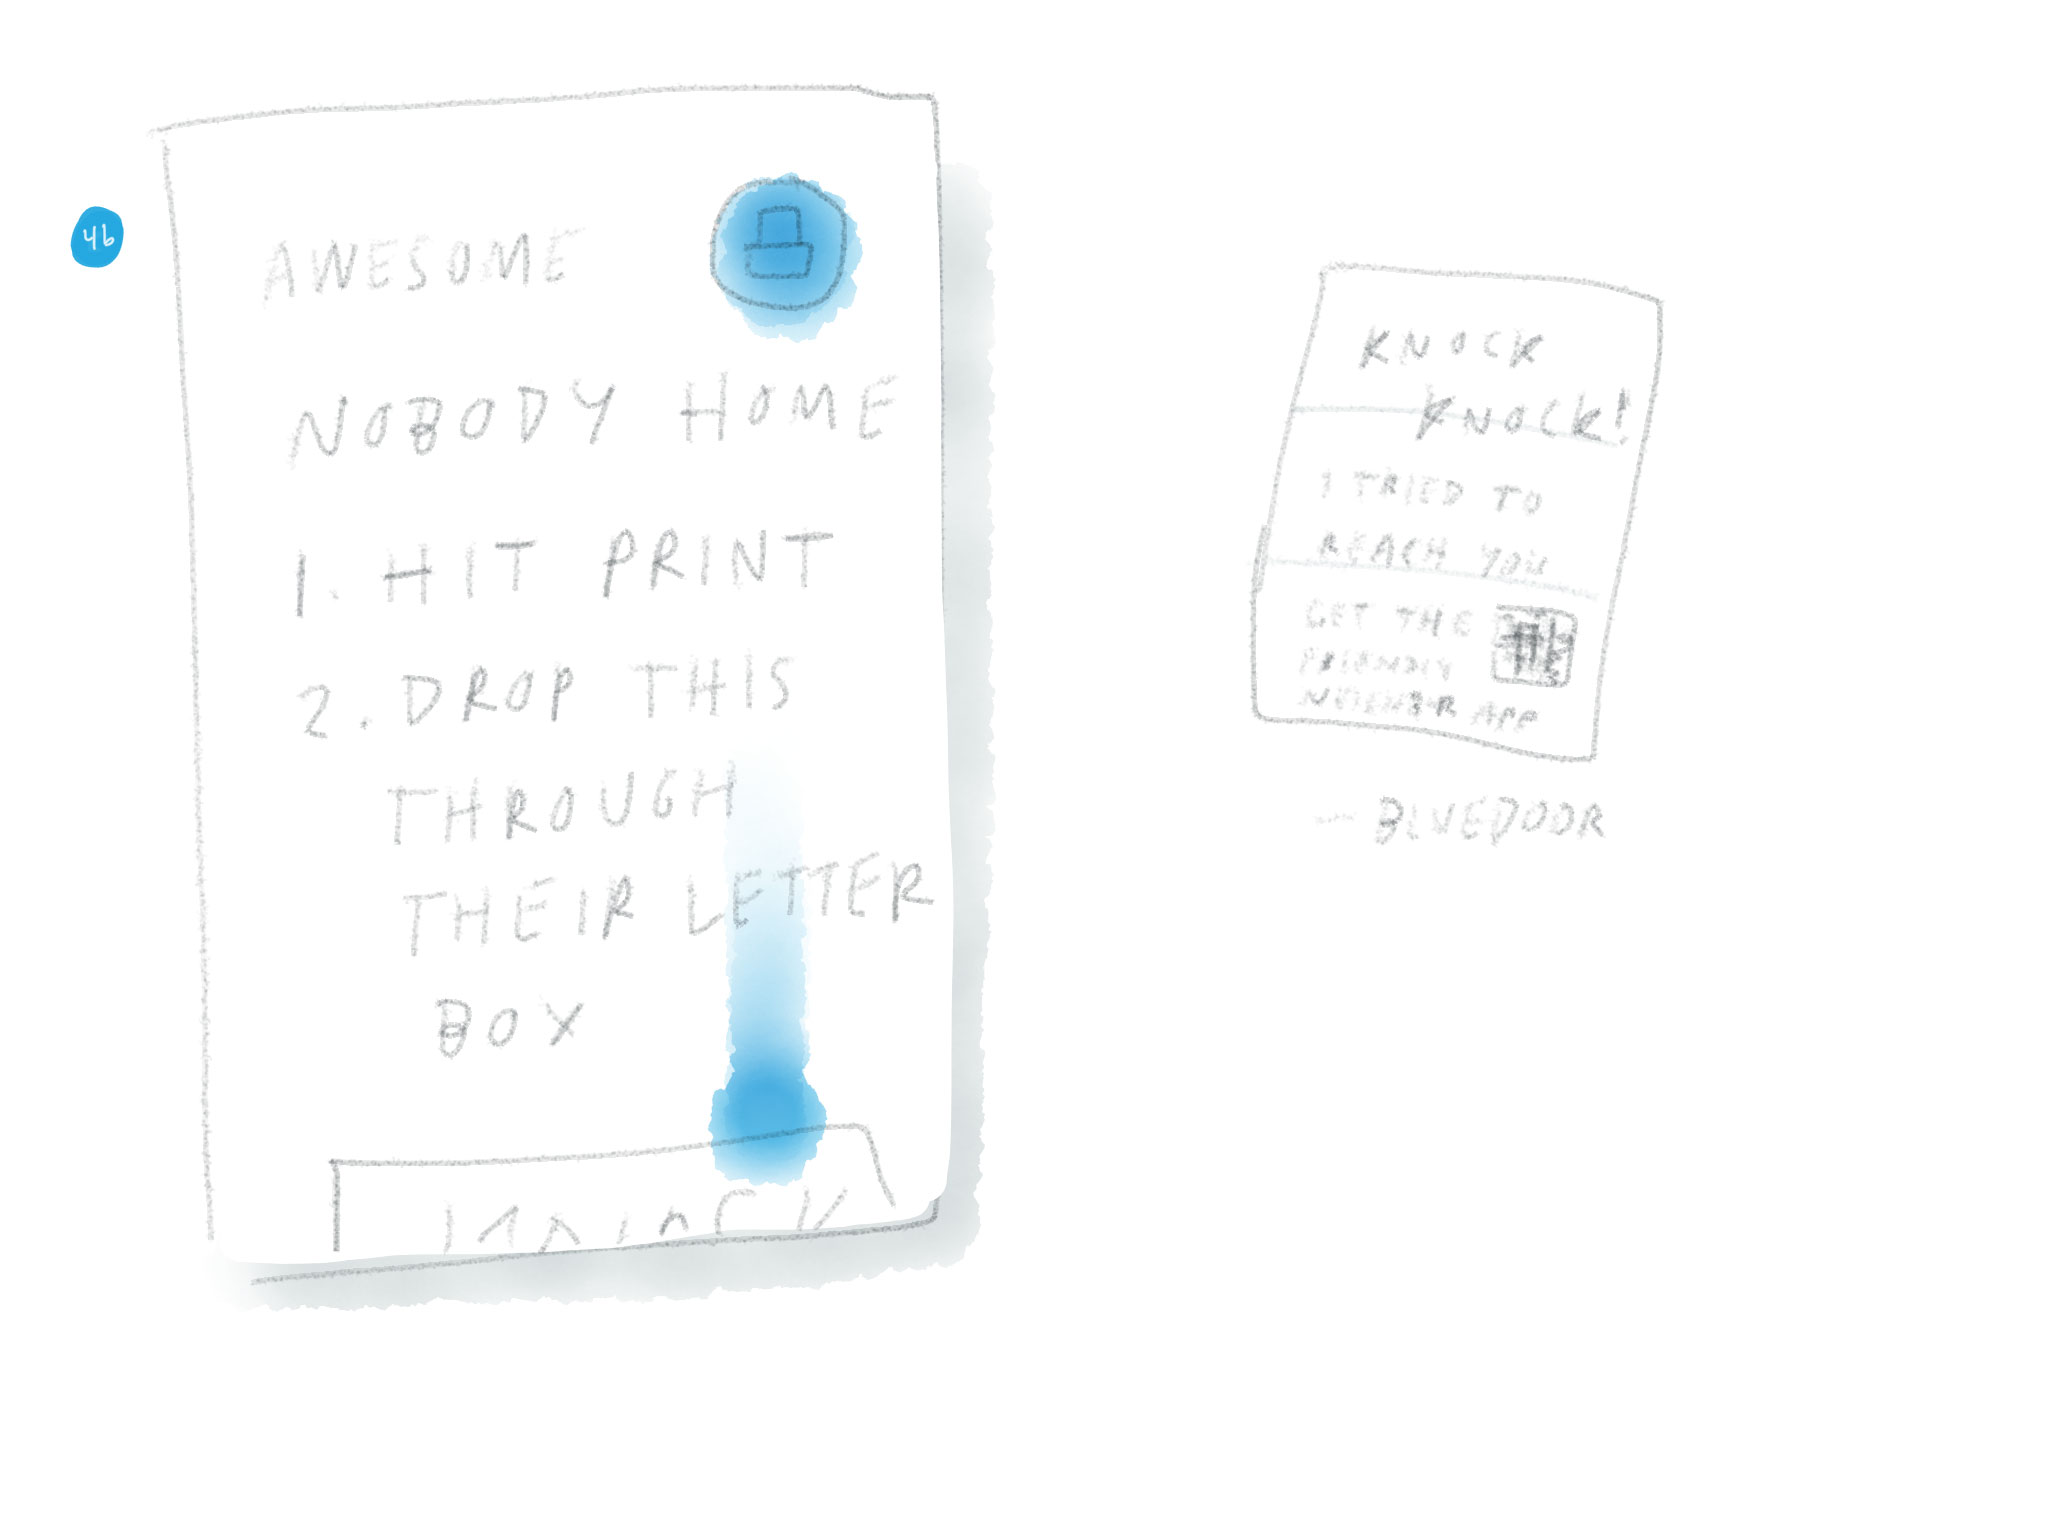 46
AWESOME
NOBODY HOME
1. HIT PRINT
2. DROP THIS
THROUGH
THEIR LETTER
BOX
KNOCK
KNOCK!
I TRIED TO
REACH YOU
GET THE
FRIENDLY
APP
— BLUEDOOR